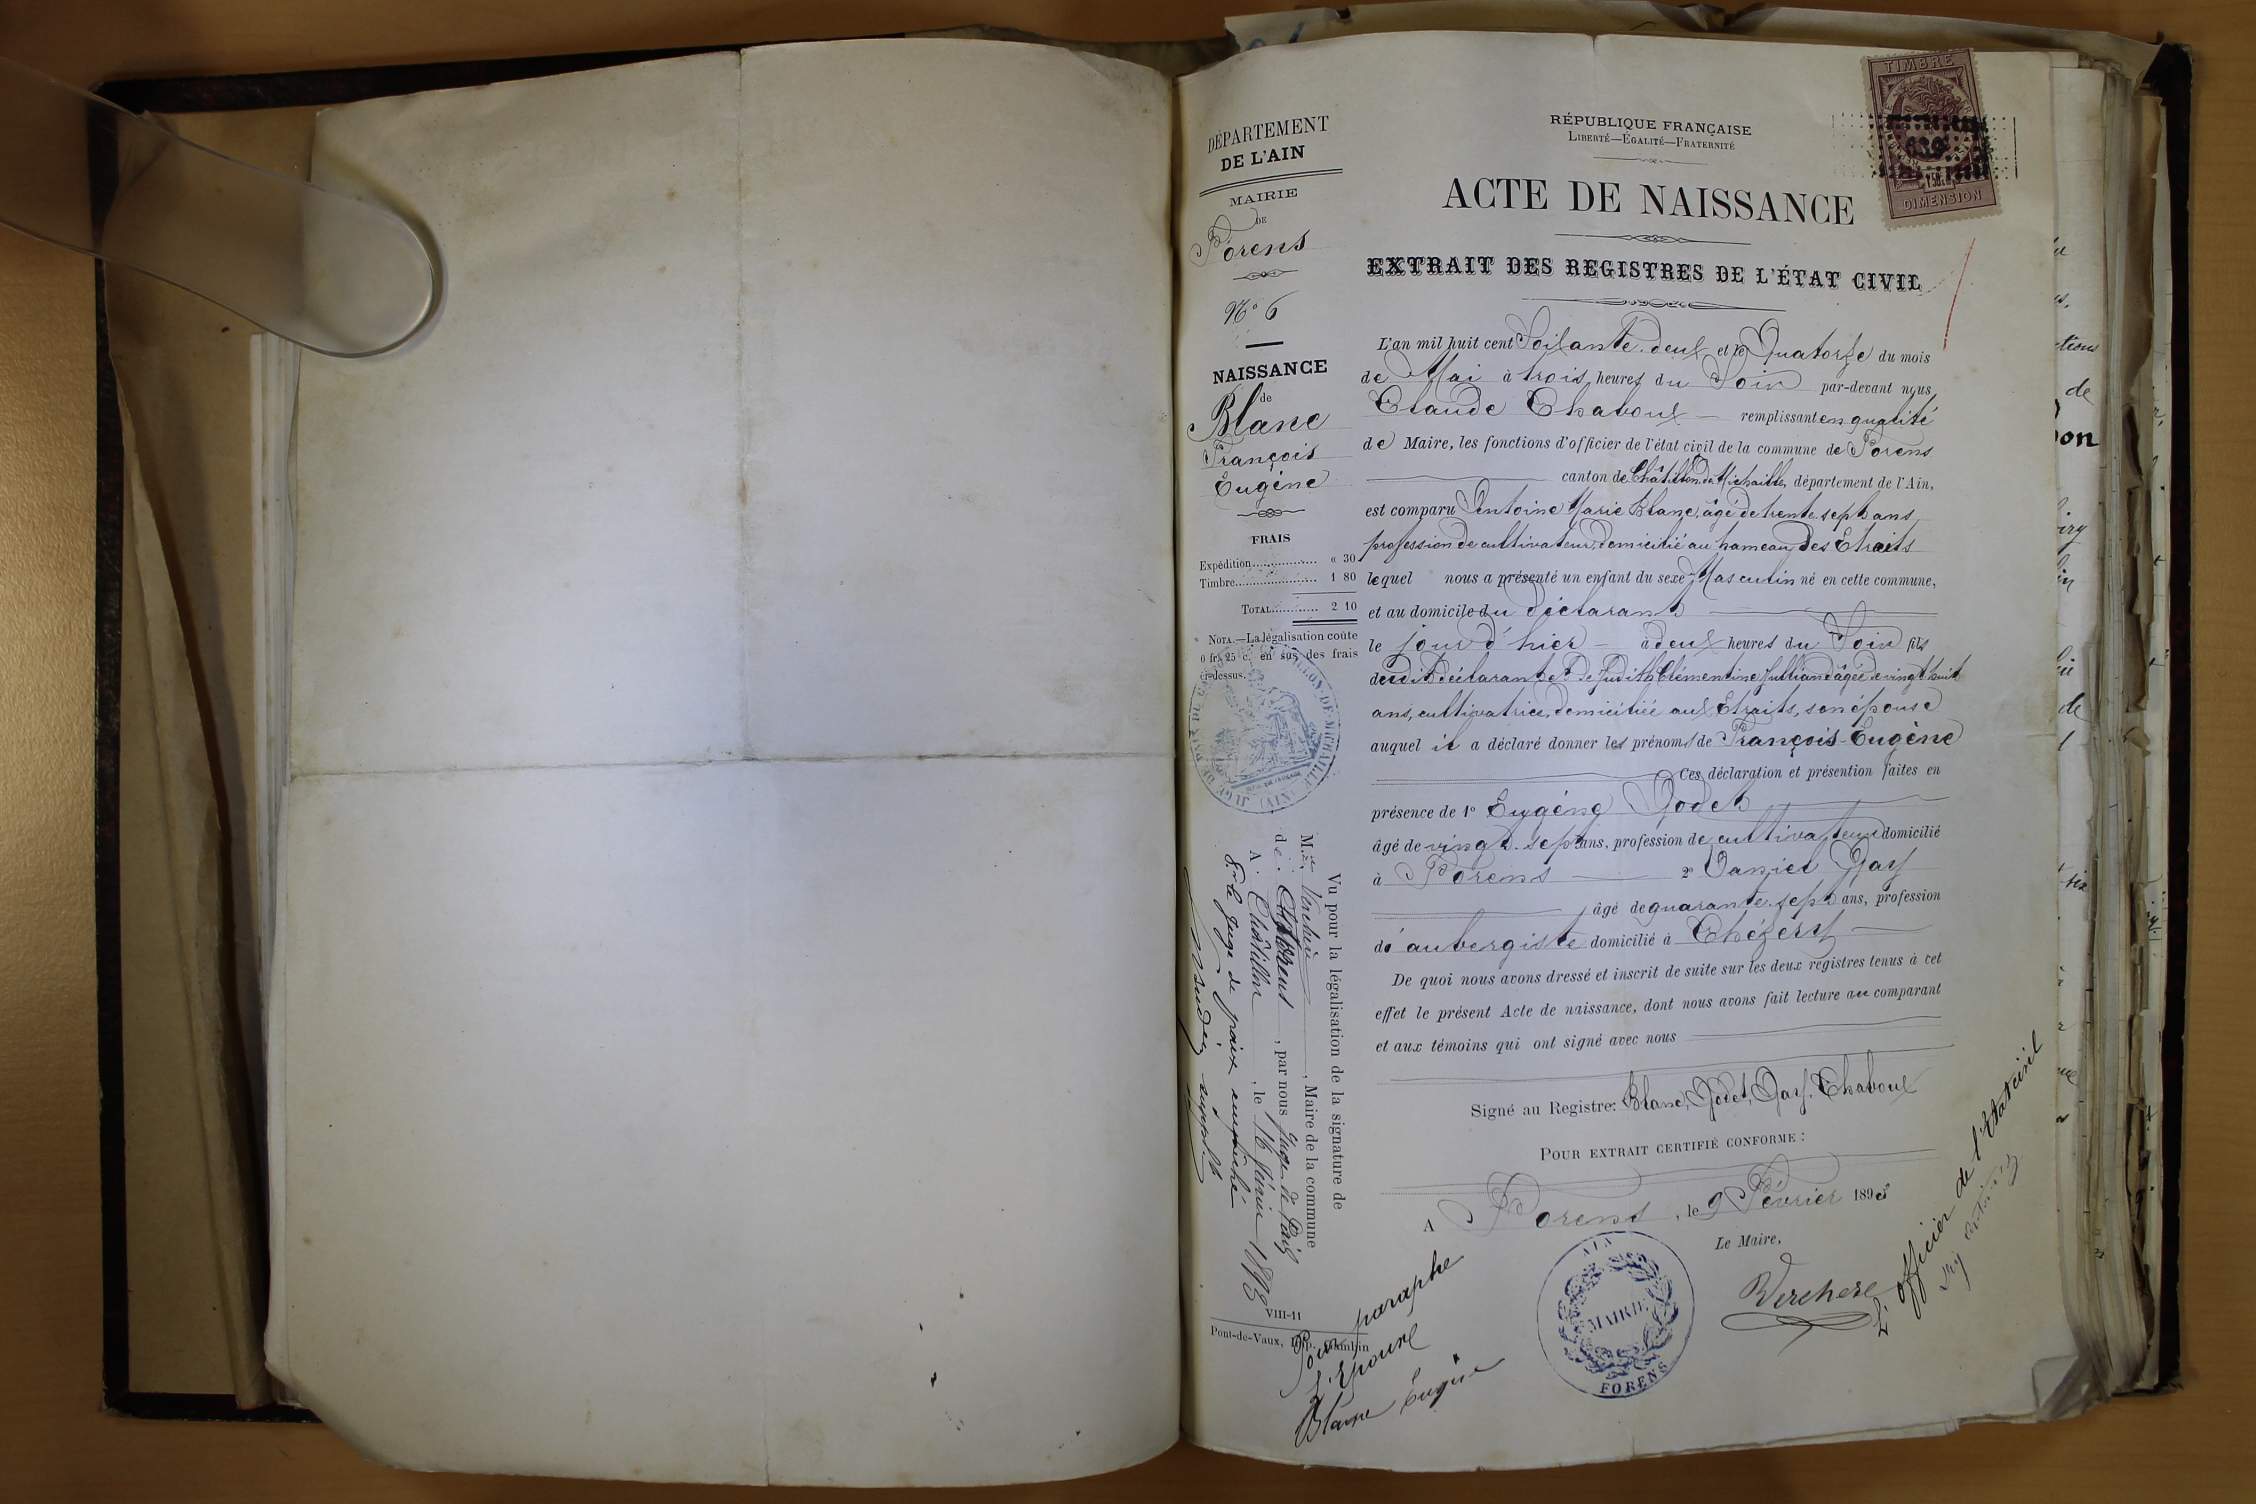 DÉPARTEMENT
DE L'AIN
MAIRIE
DE
Forens
No 6
NAISSANCE
de
Blanc
François
Eugène
FRAIS
Expédition................ « 30
Timbre..................... 1 80
TOTAL............ 2 10
NOTA.—La légalisation coûte
0 fr. 25 c. en sus des frais
ci-dessus.
Vu pour la légalisation de la signature de
M. Verchère, Maire de la commune
de Forens, par nous Juge de Paix
A Châtillon, le 16 Février 1893
P. le Juge de paix empêché
suppt
VIII-11
Pont-de-Vaux, Imp.
RÉPUBLIQUE FRANÇAISE
LIBERTÉ—EGALITÉ—FRATERNITÉ
TIMBRE
639
1 50c
DIMENSION
ACTE DE NAISSANCE
EXTRAIT DES REGISTRES DE L'ÉTAT CIVIL
L'an mil huit cent Soixante-deux et le Quatorze du mois
de Mai à trois heures du Soir par-devant nous
Claude Chaboux — remplissant en qualité
de Maire, les fonctions d'officier de l'état civil de la commune de Forens
canton de Châtillon de Michaille, département de l'Ain,
est comparu Antoine Marie Blanc, âgé de trente-sept ans,
profession de cultivateur, domicilié au hameau des Etraits
lequel nous a présenté un enfant du sexe Masculin né en cette commune,
et au domicile du déclarant
le jour d'hier — à deux heures du Soir fils
dudit déclarant et de Judith Clémentine Julliand âgée de vingt huit
ans, cultivatrice, domiciliée aux Etraits, son épouse
auquel il a déclaré donner les prénoms de François-Eugène
Ces déclaration et présention faites en
présence de 1o Eugène Godet
âgé de vingt-sept ans, profession de cultivateur domicilié
à Forens — 2o Daniel Gay
âgé de quarante-sept ans, profession
d'aubergiste domicilié à Chézery
De quoi nous avons dressé et inscrit de suite sur les deux registres tenus à cet
effet le présent Acte de naissance, dont nous avons fait lecture au comparant
et aux témoins qui ont signé avec nous
Signé au Registre: Blanc, Godet, Gay, Chaboux
POUR EXTRAIT CERTIFIÉ CONFORME :
A Forens, le 9 Février 1893
Le Maire,
Verchere
AIN
MAIRIE
FORENS
Pour paraphe
L'Epoux
Blanc Eugène
L'officier de l'Etat civil